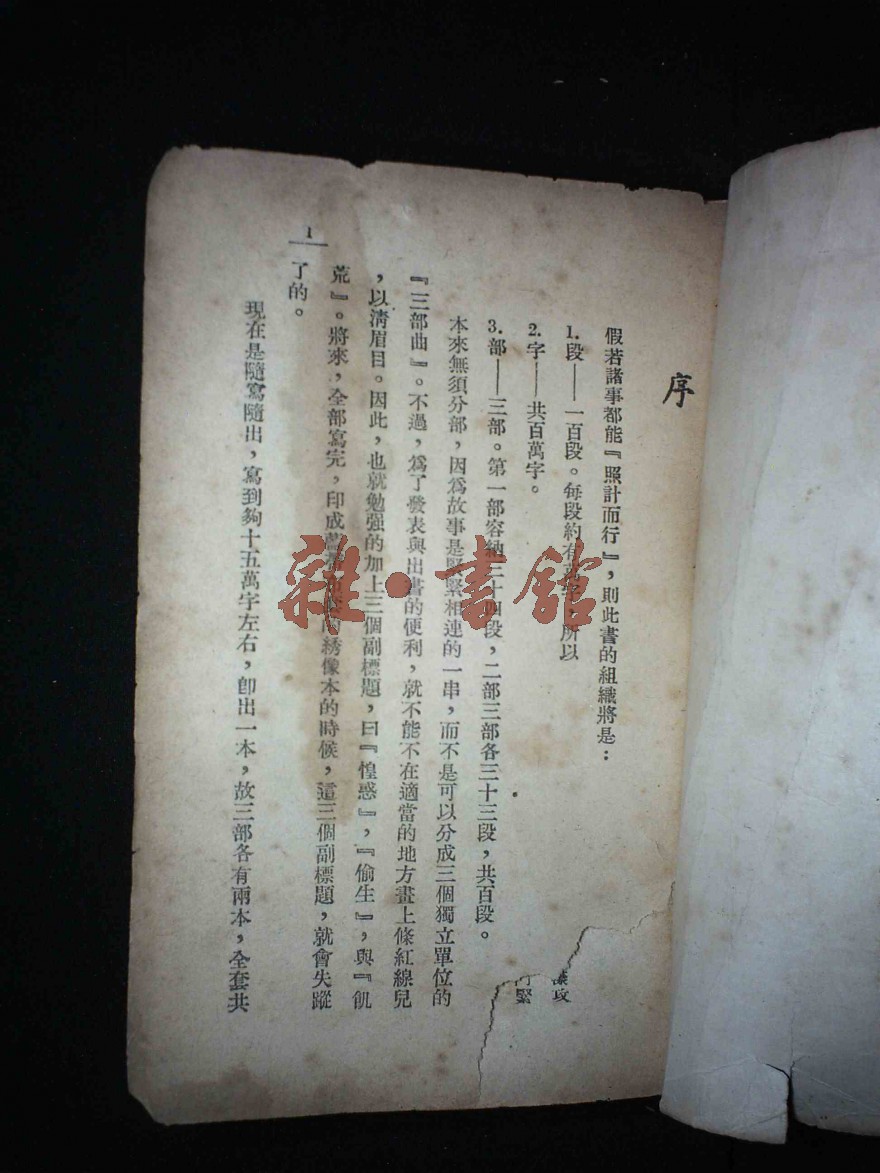 序
假若諸事都能『照計而行』，則此書的組織將是：
1．段——一百段。每段約有萬字，所以
2．字——共百萬字。
3．部——三部。第一部容納三十四段，二部三部各三十三段，共百段。
本來無須分部，因爲故事是緊緊相連的一串，而不是可以分成三個獨立單位的
『三部曲』。不過，爲了發表與出書的便利，就不能不在適當的地方畫上條紅線兒
，以清眉目。因此，也就勉强的加上三個副標題，曰『惶惑』，『偷生』，與『飢
荒』。將來，全部寫完，印成的綉像本的時候，這三個副標題，就會失蹤
了的。
現在是隨寫隨出，寫到夠十五萬字左右，卽出一本，故三部各有兩本，全套共
1
緊
雜·書館